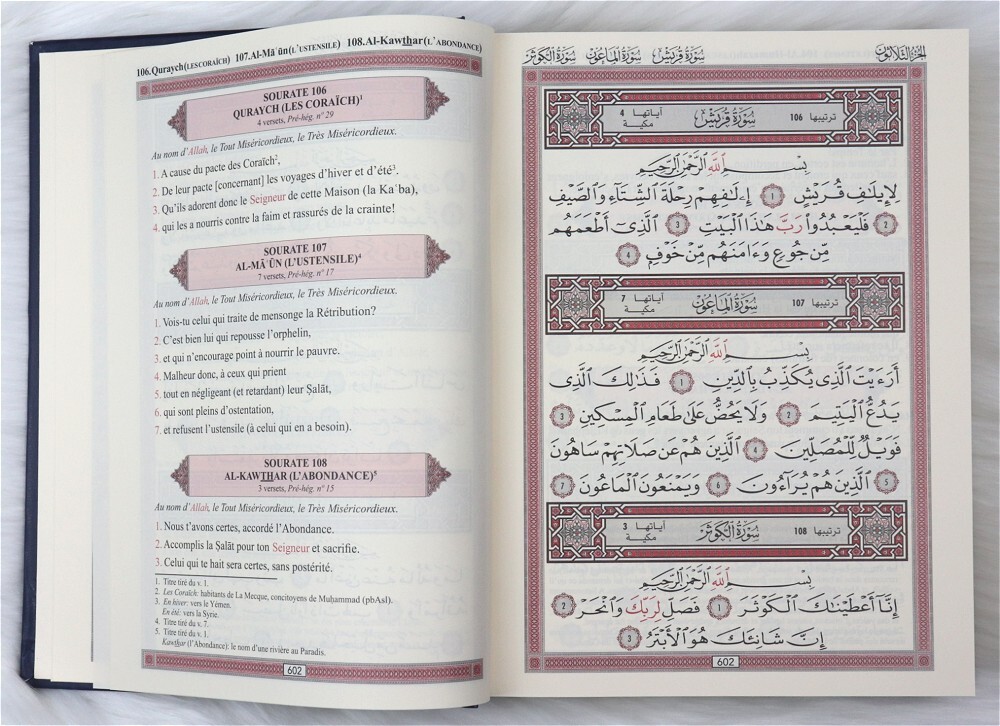 106.Quraych(LESCORAÏCH) 107.Al-Mā`ūn(L'USTENSILE) 108.Al-Kawthar(L'ABONDANCE)
SOURATE 106
QURAYCH (LES CORAÏCH)¹
4 versets, Pré-hég. n° 29
Au nom d'Allah, le Tout Miséricordieux, le Très Miséricordieux.
1. A cause du pacte des Coraïch²,
2. De leur pacte [concernant] les voyages d'hiver et d'été³.
3. Qu'ils adorent donc le Seigneur de cette Maison (la Ka`ba),
4. qui les a nourris contre la faim et rassurés de la crainte!
SOURATE 107
AL-MĀ`ŪN (L'USTENSILE)⁴
7 versets, Pré-hég. n° 17
Au nom d'Allah, le Tout Miséricordieux, le Très Miséricordieux.
1. Vois-tu celui qui traite de mensonge la Rétribution?
2. C'est bien lui qui repousse l'orphelin,
3. et qui n'encourage point à nourrir le pauvre.
4. Malheur donc, à ceux qui prient
5. tout en négligeant (et retardant) leur Ṣalāt,
6. qui sont pleins d'ostentation,
7. et refusent l'ustensile (à celui qui en a besoin).
SOURATE 108
AL-KAWTHAR (L'ABONDANCE)⁵
3 versets, Pré-hég. n° 15
Au nom d'Allah, le Tout Miséricordieux, le Très Miséricordieux.
1. Nous t'avons certes, accordé l'Abondance.
2. Accomplis la Ṣalāt pour ton Seigneur et sacrifie.
3. Celui qui te hait sera certes, sans postérité.
1. Titre tiré du v. 1.
2. Les Coraïch: habitants de La Mecque, concitoyens de Muḥammad (pbAsl).
3. En hiver: vers le Yémen.
En été: vers la Syrie.
4. Titre tiré du v. 7.
5. Titre tiré du v. 1.
Kawthar (l'Abondance): le nom d'une rivière au Paradis.
602
الجزء الثلاثون سورة قريش سورة الماعون سورة الكوثر
ترتيبها 106 سُورَةُ قُرَيْشٍ آياتها 4 مكية
بِسْمِ اللَّهِ الرَّحْمَٰنِ الرَّحِيمِ
لِإِيلَٰفِ قُرَيْشٍ ١ إِۦلَٰفِهِمْ رِحْلَةَ الشِّتَآءِ وَالصَّيْفِ
٢ فَلْيَعْبُدُوا۟ رَبَّ هَٰذَا الْبَيْتِ ٣ الَّذِىٓ أَطْعَمَهُم
مِّن جُوعٍ وَءَامَنَهُم مِّنْ خَوْفٍۭ ٤
ترتيبها 107 سُورَةُ المَاعُونِ آياتها 7 مكية
بِسْمِ اللَّهِ الرَّحْمَٰنِ الرَّحِيمِ
أَرَءَيْتَ الَّذِى يُكَذِّبُ بِالدِّينِ ١ فَذَٰلِكَ الَّذِى
يَدُعُّ الْيَتِيمَ ٢ وَلَا يَحُضُّ عَلَىٰ طَعَامِ الْمِسْكِينِ ٣
فَوَيْلٌ لِّلْمُصَلِّينَ ٤ الَّذِينَ هُمْ عَن صَلَاتِهِمْ سَاهُونَ
٥ الَّذِينَ هُمْ يُرَآءُونَ ٦ وَيَمْنَعُونَ الْمَاعُونَ ٧
ترتيبها 108 سُورَةُ الكَوْثَرِ آياتها 3 مكية
بِسْمِ اللَّهِ الرَّحْمَٰنِ الرَّحِيمِ
إِنَّآ أَعْطَيْنَٰكَ الْكَوْثَرَ ١ فَصَلِّ لِرَبِّكَ وَانْحَرْ ٢
إِنَّ شَانِئَكَ هُوَ الْأَبْتَرُ ٣
602